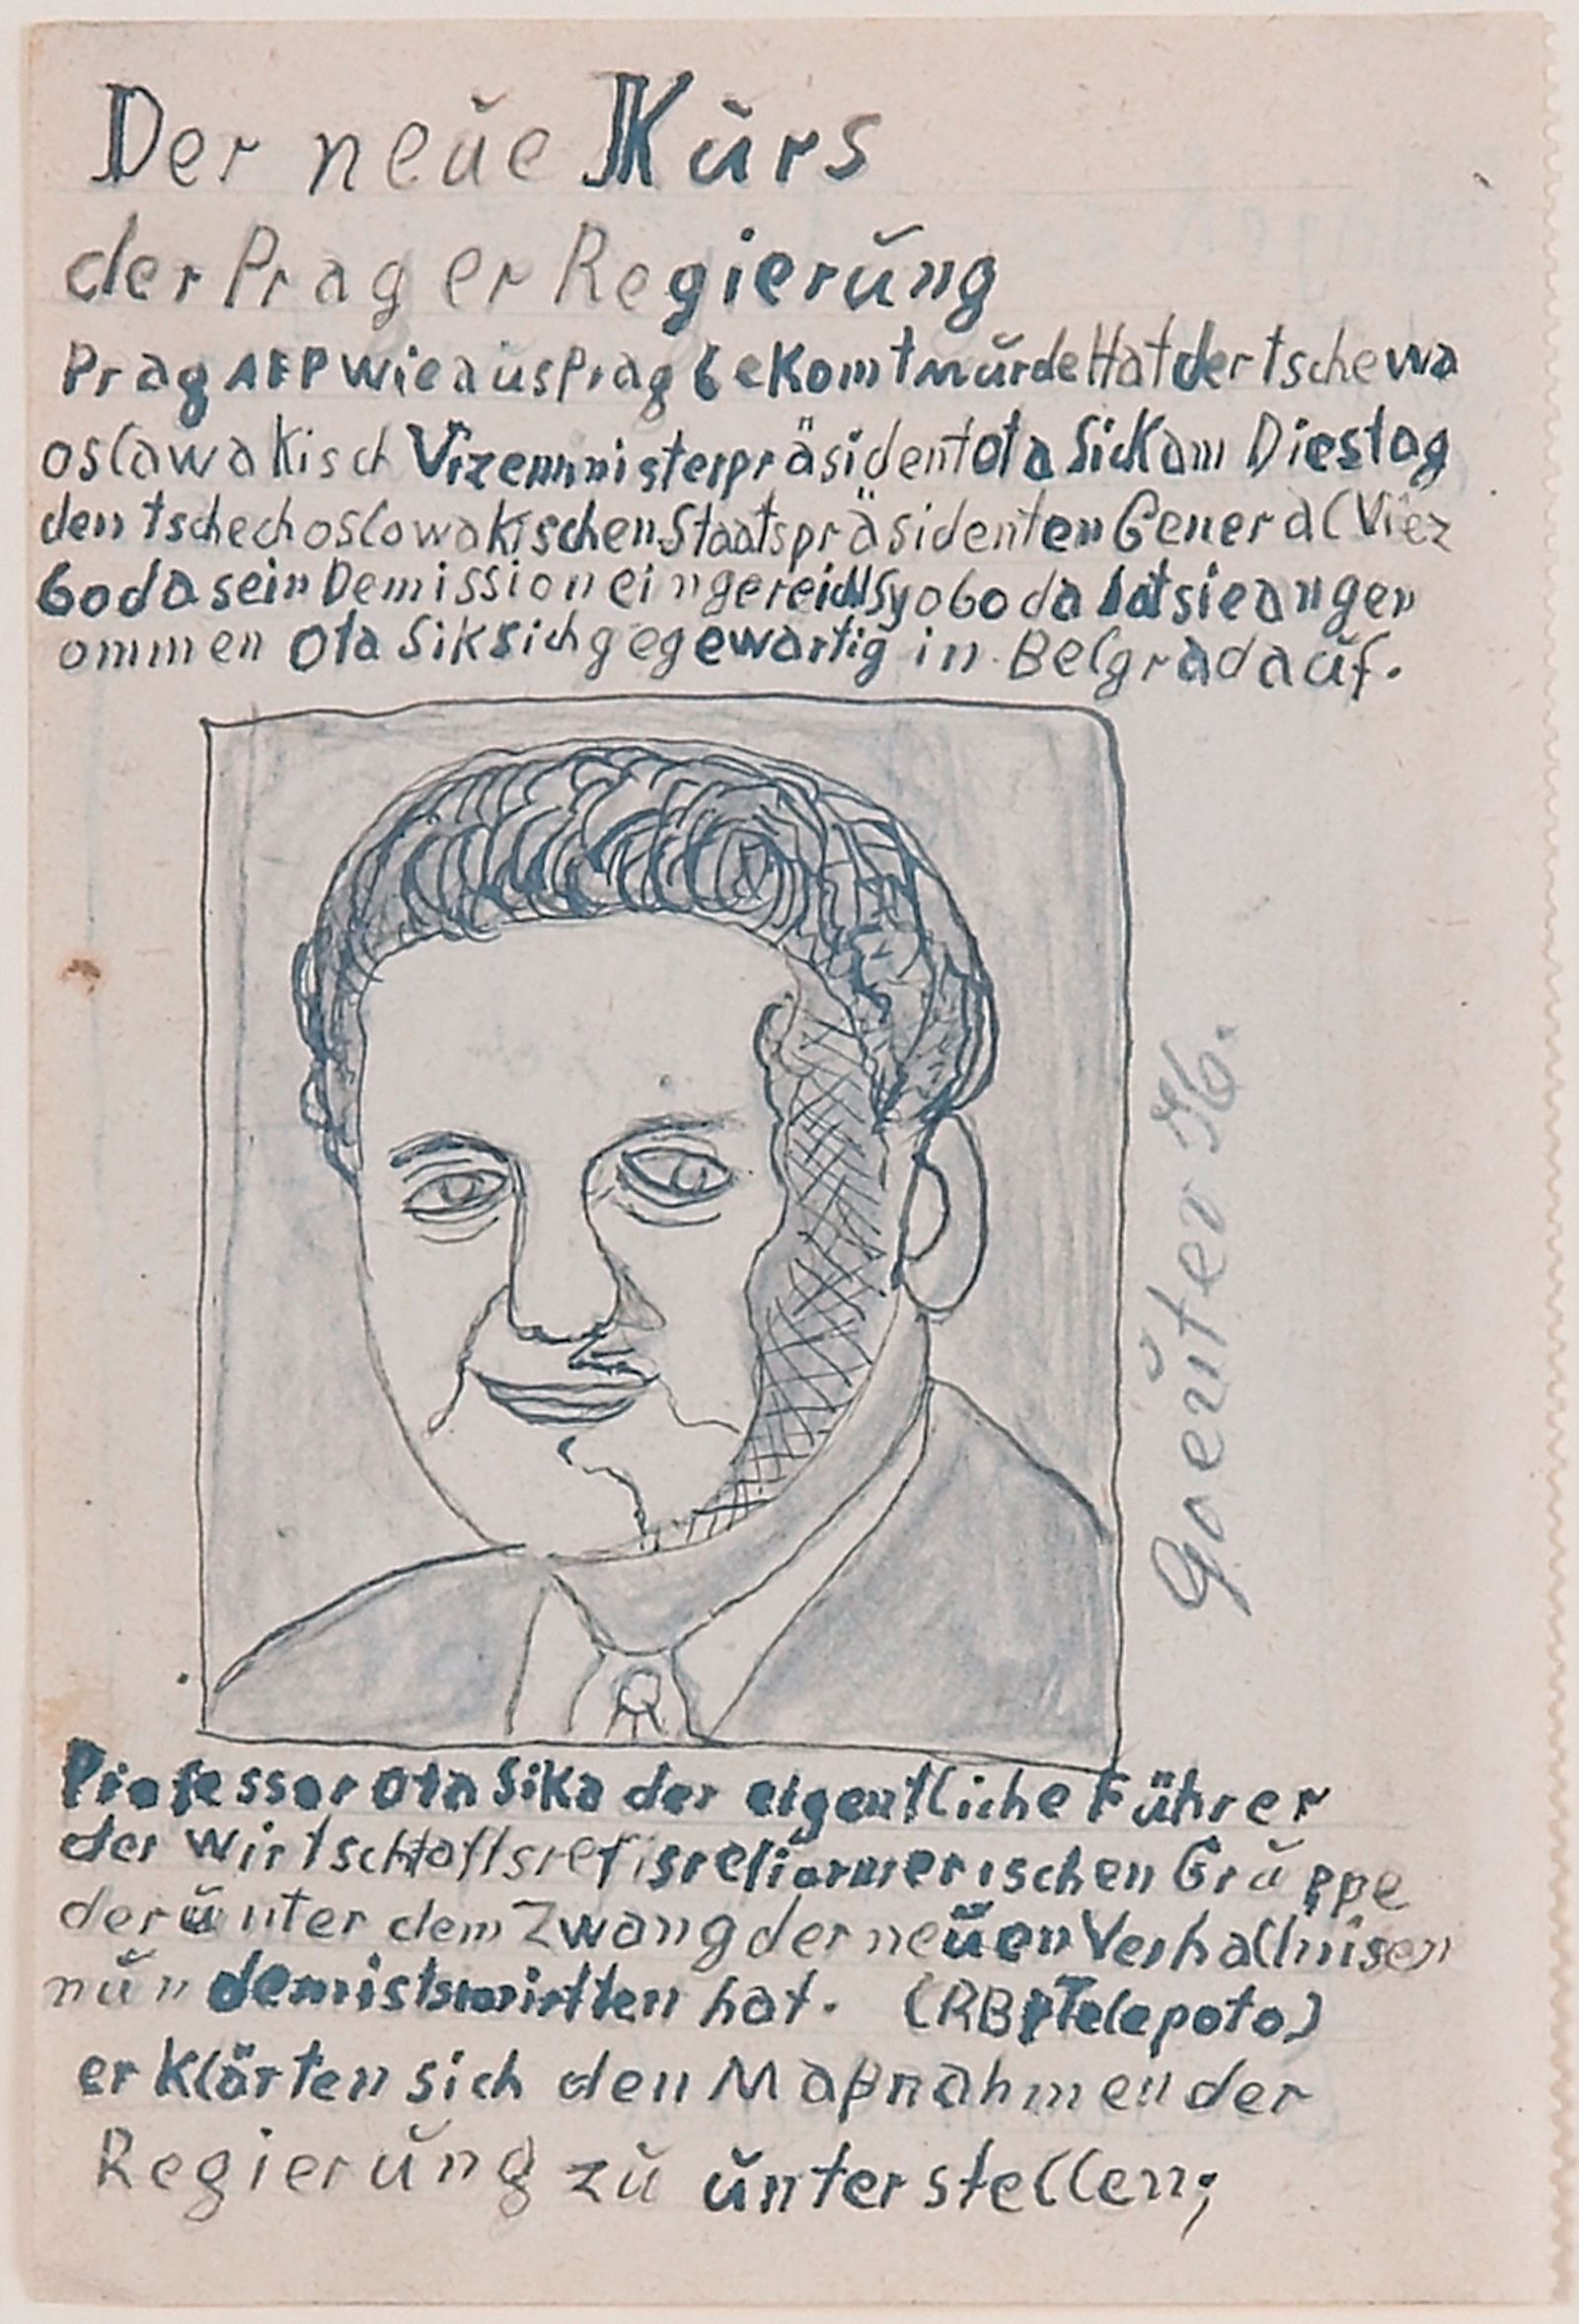 Der neue Kurs
der Prager Regierung
Prag AFP wie aus Prag bekomt wurde Hat der tschewa
oslawakisch Vizemnisterpräsident Ota Sick am Diestag
den tschechoslowakischen Staatspräsidenten General
boda sein Demission eingereicht Syoboda hat sie angen
ommen Ota Sik sich gegewartig in Belgrad auf.
Professor Ota Sika der eigentliche Führer
der Gruppe
der unter dem Zwang der neuen Verhallnisen
nun hat. (RBTelepoto)
erklärten sich den Maßnahmen der
Regierung zu unterstellen;